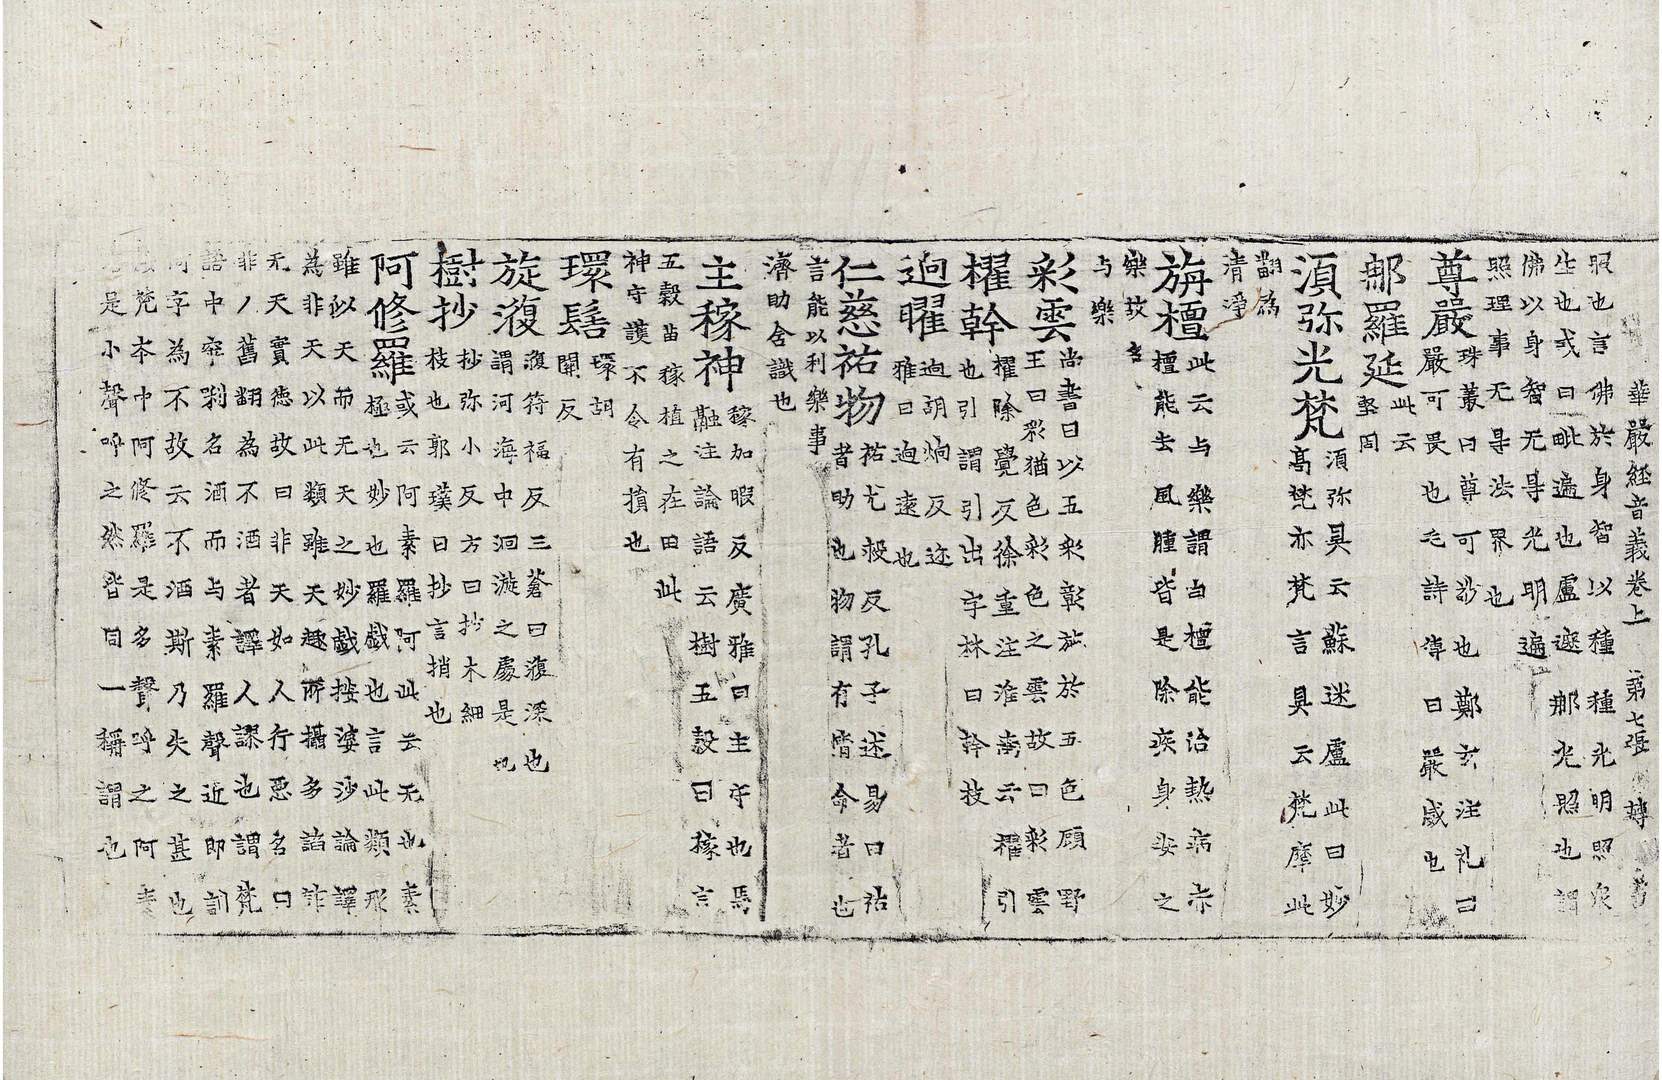 華嚴経音義卷上 第七張
照也言佛於身智以種種光明照衆
生也或曰毗遍也盧遮那光照也謂
佛以身智无㝵光明遍
照理事无㝵法界也
尊嚴 珠叢曰尊可敬也鄭玄注礼曰
嚴可畏也毛詩傳曰嚴威也
那羅延 此云
堅固
湏弥光梵 湏弥具云蘇迷盧此曰妙
高梵亦梵言具云梵摩此
翻爲
清淨
旃檀 此云与樂謂白檀能治熱病赤
檀能去風腫皆是除疾身安之
樂故名
与樂
彩雲 尚書曰以五彩彰施於五色顧野
王曰彩猶色彩色之雲故曰彩雲
櫂幹 櫂除覺反徐重注淮南云櫂引
也引謂引出字林曰幹枝
迥曜 迥胡炯反迩
雅曰迥遠也
仁慈祐物 祐尤救反孔子述易曰祐
者助也物謂有情命者也
言能以利樂事
濟助含識也
主稼神 稼加暇反廣雅曰主守也馬
融注論語云樹五穀曰稼言
五穀苗稼植之在田此
神守護不令有損也
環髻 環胡
關反
旋澓 澓符福反三蒼曰澓深也
謂河海中洄漩之處是也
樹抄 抄弥小反方曰抄木細
枝也郭璞曰抄言捎也
阿修羅 或云阿素羅阿此云无也素
極也妙也羅戲也言此類形
雖似天而无天之妙戲按婆沙論譯
為非天以此類雖天趣所攝多諂詐
无天實德故曰非天如人行惡名曰
非人舊翻為不酒者譯人謬也謂梵
語中窣剌名酒而与素羅聲近即訓
阿字為不故云不酒斯乃失之甚也
梵夲中阿修羅是多聲呼之阿素
是小聲呼之然皆同一稱謂也